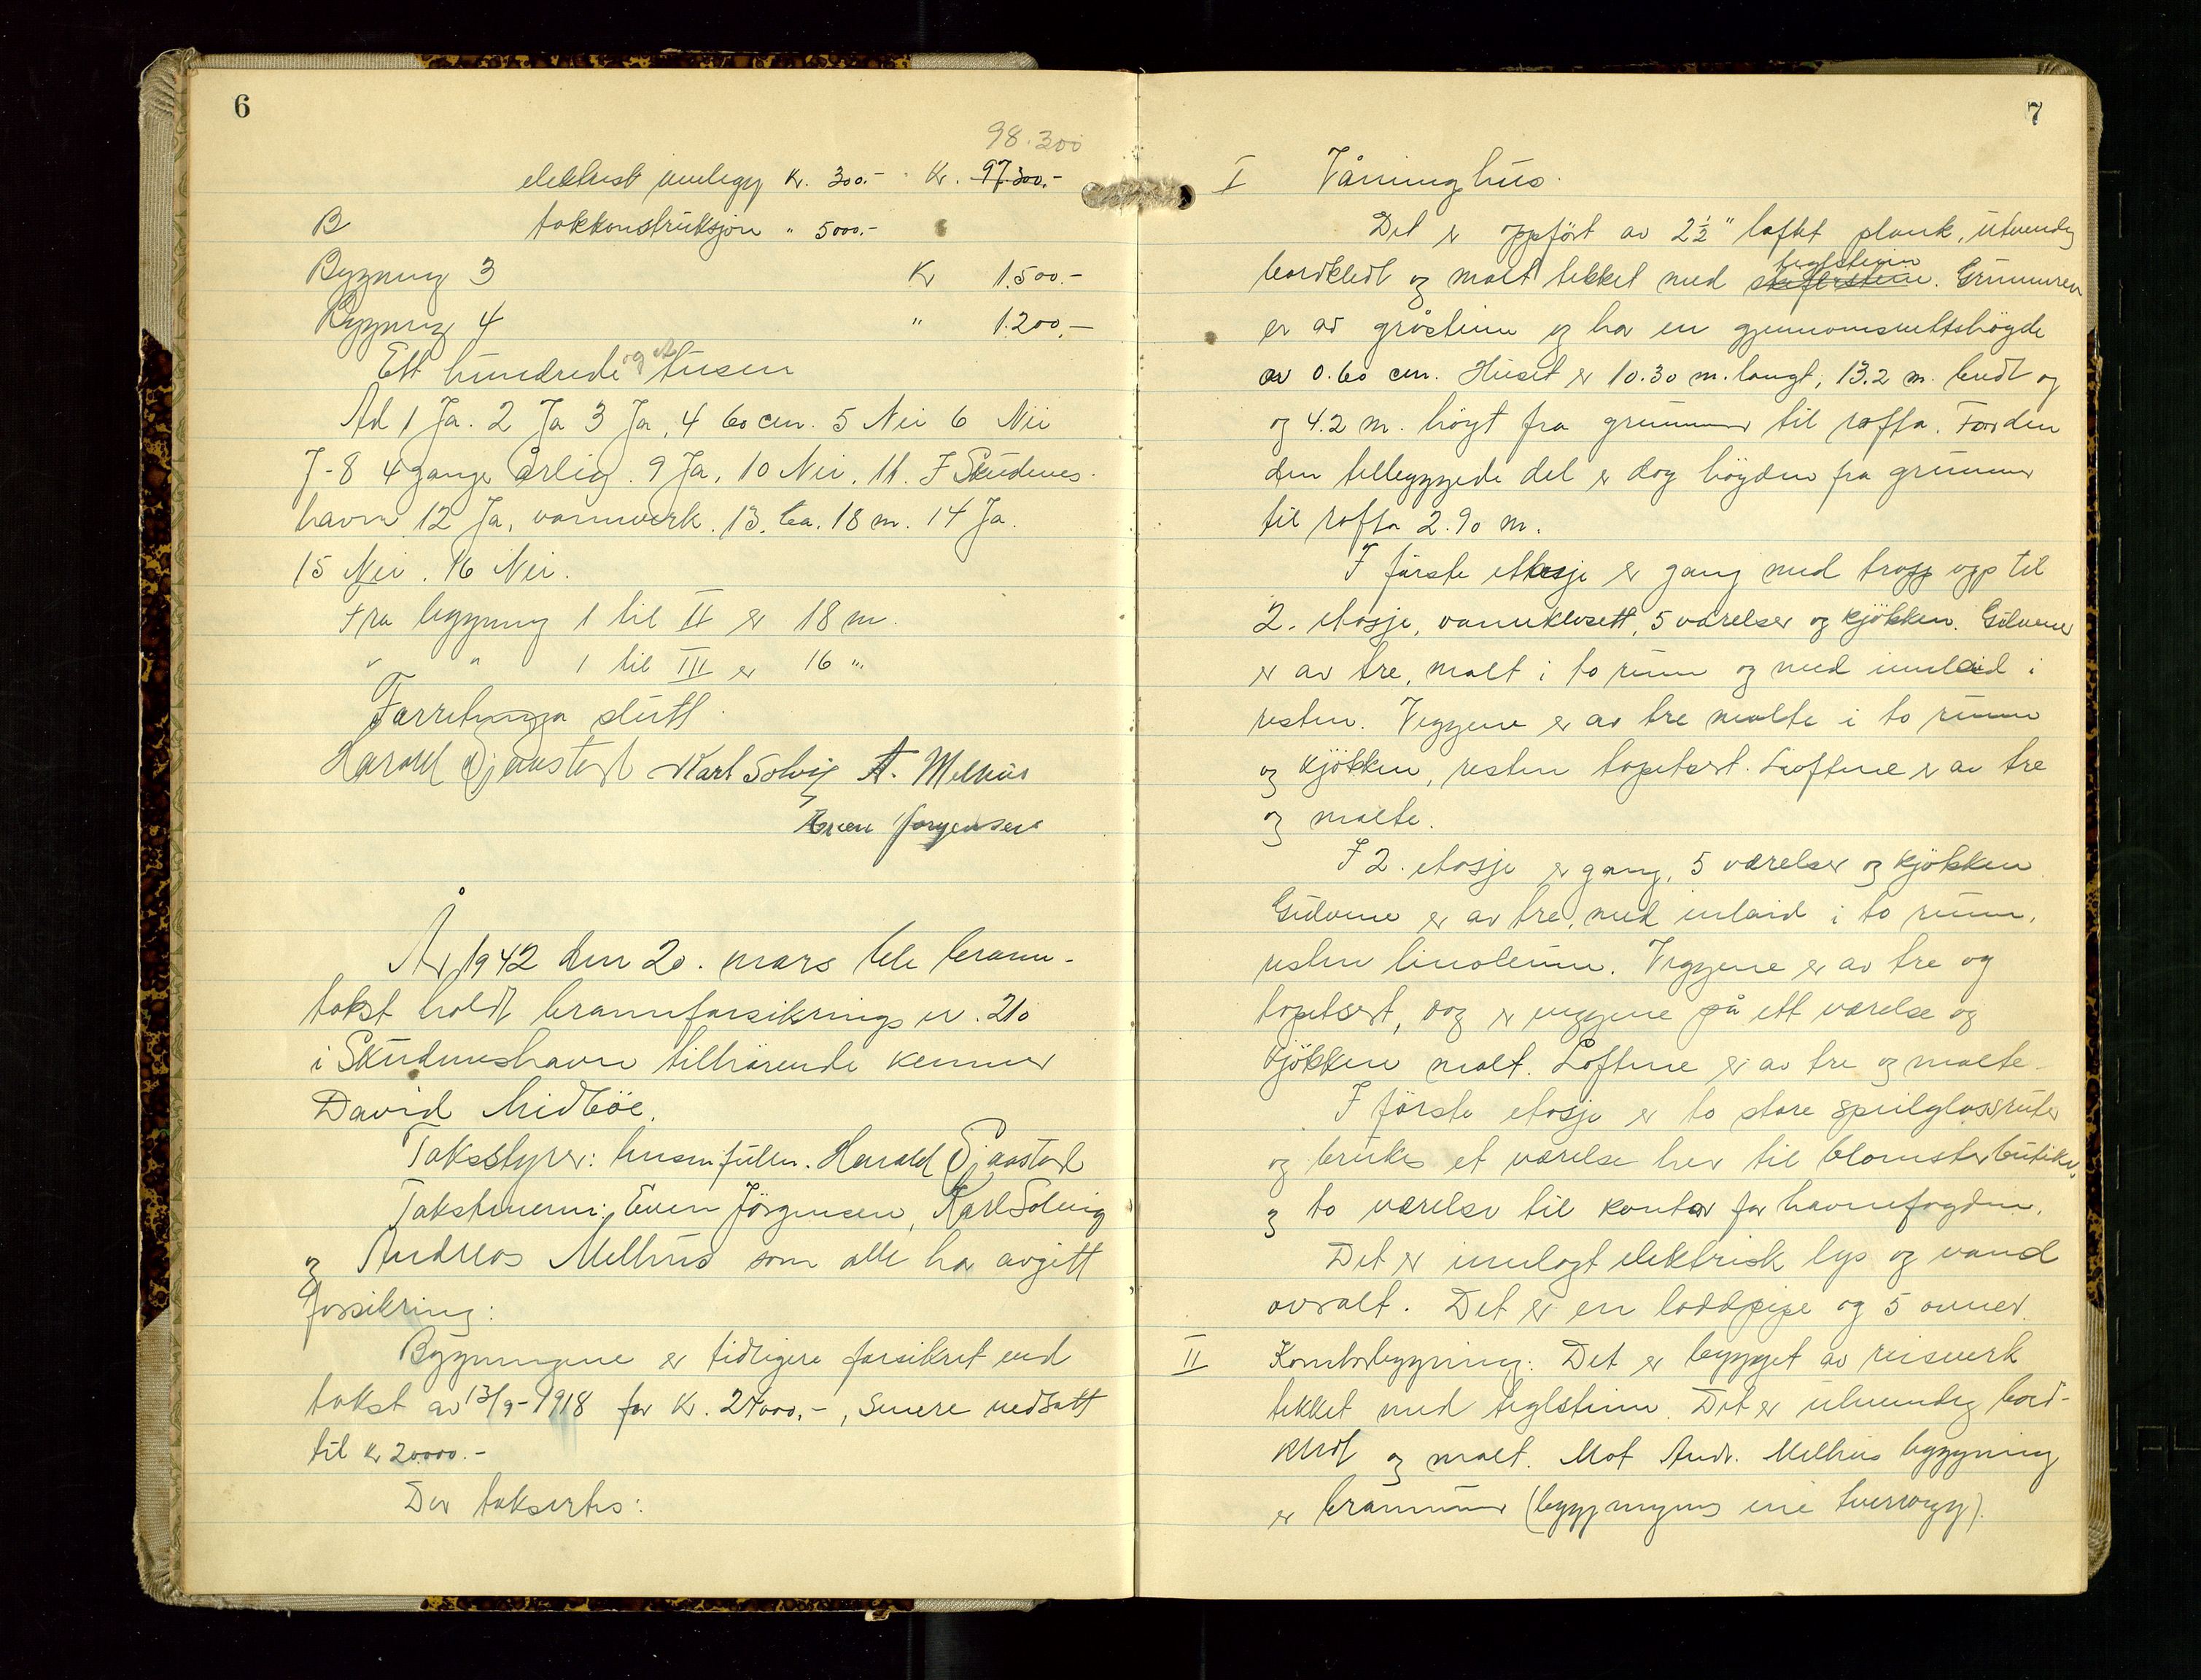 6
98.300
elektrisk innlegg Kr. 300.- Kr. 97.300.-
B takkonstruksjon " 5000.-
Bygning 3 Kr 1.500.-
Bygning 4 " 1.200.-
Ett hundrede og et tusen
Ad 1 Ja. 2 Ja 3 Ja, 4 60 cm. 5 Nei 6 Nei
7-8 4 ganger årlig. 9 Ja, 10 Nei. 11. I Skudenes-
havn 12 Ja, vannverk. 13. Ca. 18 m. 14 Ja.
15 Nei. 16 Nei.
Fra bygning 1 til II er 18 m.
" " 1 til III er 16 "
Forretninga slutt.
Harald Sjaastad Karl Solvig A. Melhus
Even Jørgensen
År 1942 den 20. mars ble brann-
takst holdt brannforsikrings nr. 210
i Skudeneshavn tilhørende kemner
David Midböe.
Takstyrer: Harald Sjaastad
Takstmenn: Even Jörgensen, Karl Solvig
og Andreas Melhus som alle har avgitt
forsikring:
Bygningene er tidligere forsikret ved
takst av 13/9-1918 for Kr. 24000.-, senere nedsatt
til Kr 20000.-
Der takseres:
7
I Våninghus.
Det er oppfört av 2½" laftet plank, utvendig
bordkledt og malt tekket med skiferstein teglsteinn. Grunnmuren
er av gråsteinn og har en gjennomsnittshögde
av 0.60 cm. Huset er 10.30 m. langt, 13.2 m. bredt og
og 4.2 m. högt fra grunnmur til rafta. For den
den tilbyggede del er dog högden fra grunnmur
til rafta 2.90 m.
I förste etasje er gang med trapp opp til
2. etasje, vannklosett, 5 værelser og kjökken. Gulvene
er av tre, malt i to rum og med innlaid i
resten. Veggene er av tre malte i to rum
og kjökken, resten tapetsert. Loftene er av tre
og malte.
I 2. etasje er gang, 5 værelser og kjökken
Gulvene er av tre, med inlaid i to rum,
resten linoleum. Veggene er av tre og
tapetsert, dog er veggene på ett værelse og
kjökken malt. Loftene er av tre og malte.
I förste etasje er to store speilglassruter
og brukes et værelse her til blomsterbutikk,
og to værelse til kontor for havnefogden.
Det er innlagt elektrisk lys og vand
overalt. Det er en loddpipe og 5 ovner.
II Kontorbygning: Det er bygget av reisverk
tekket med teglsteinn. Det er utvendig bord-
kledt og malt. Mot Andr. Melhus bygning
er brannmur (bygningens ene tverrvegg).